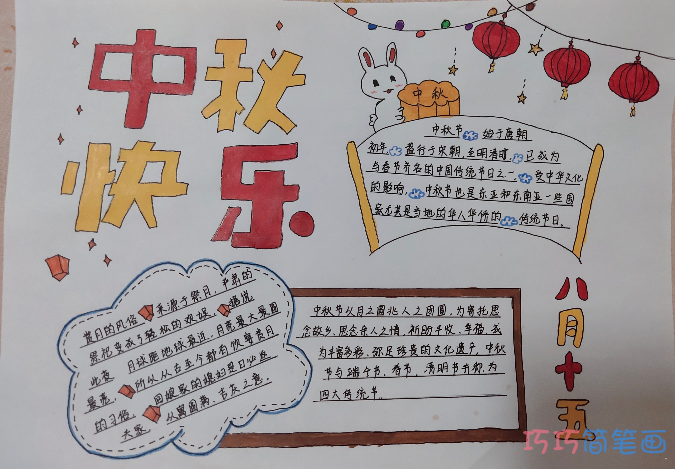 中秋
快乐
中秋
中秋节 始于唐朝
初年 盛行于宋朝,至明清时, 已成为
与春节齐名的中国传统节日之一 受中华文化
的影响, 中秋节也是东亚和东南亚一些国
尤其是当地的华人华侨的 传统节日。
八月十五
赏月的风俗 来源于祭月,
月球距地球最近,月亮最大最圆
所以从古至今都有饮宴赏月
的习俗,
中秋节以月之圆兆人之团圆,为寄托思
念故乡,思念亲人之情,祈盼丰收、幸福,成
为丰富多彩、弥足珍贵的文化遗产,中秋
节与端午节、春节、清明节并称为
四大传统节
巧巧简笔画